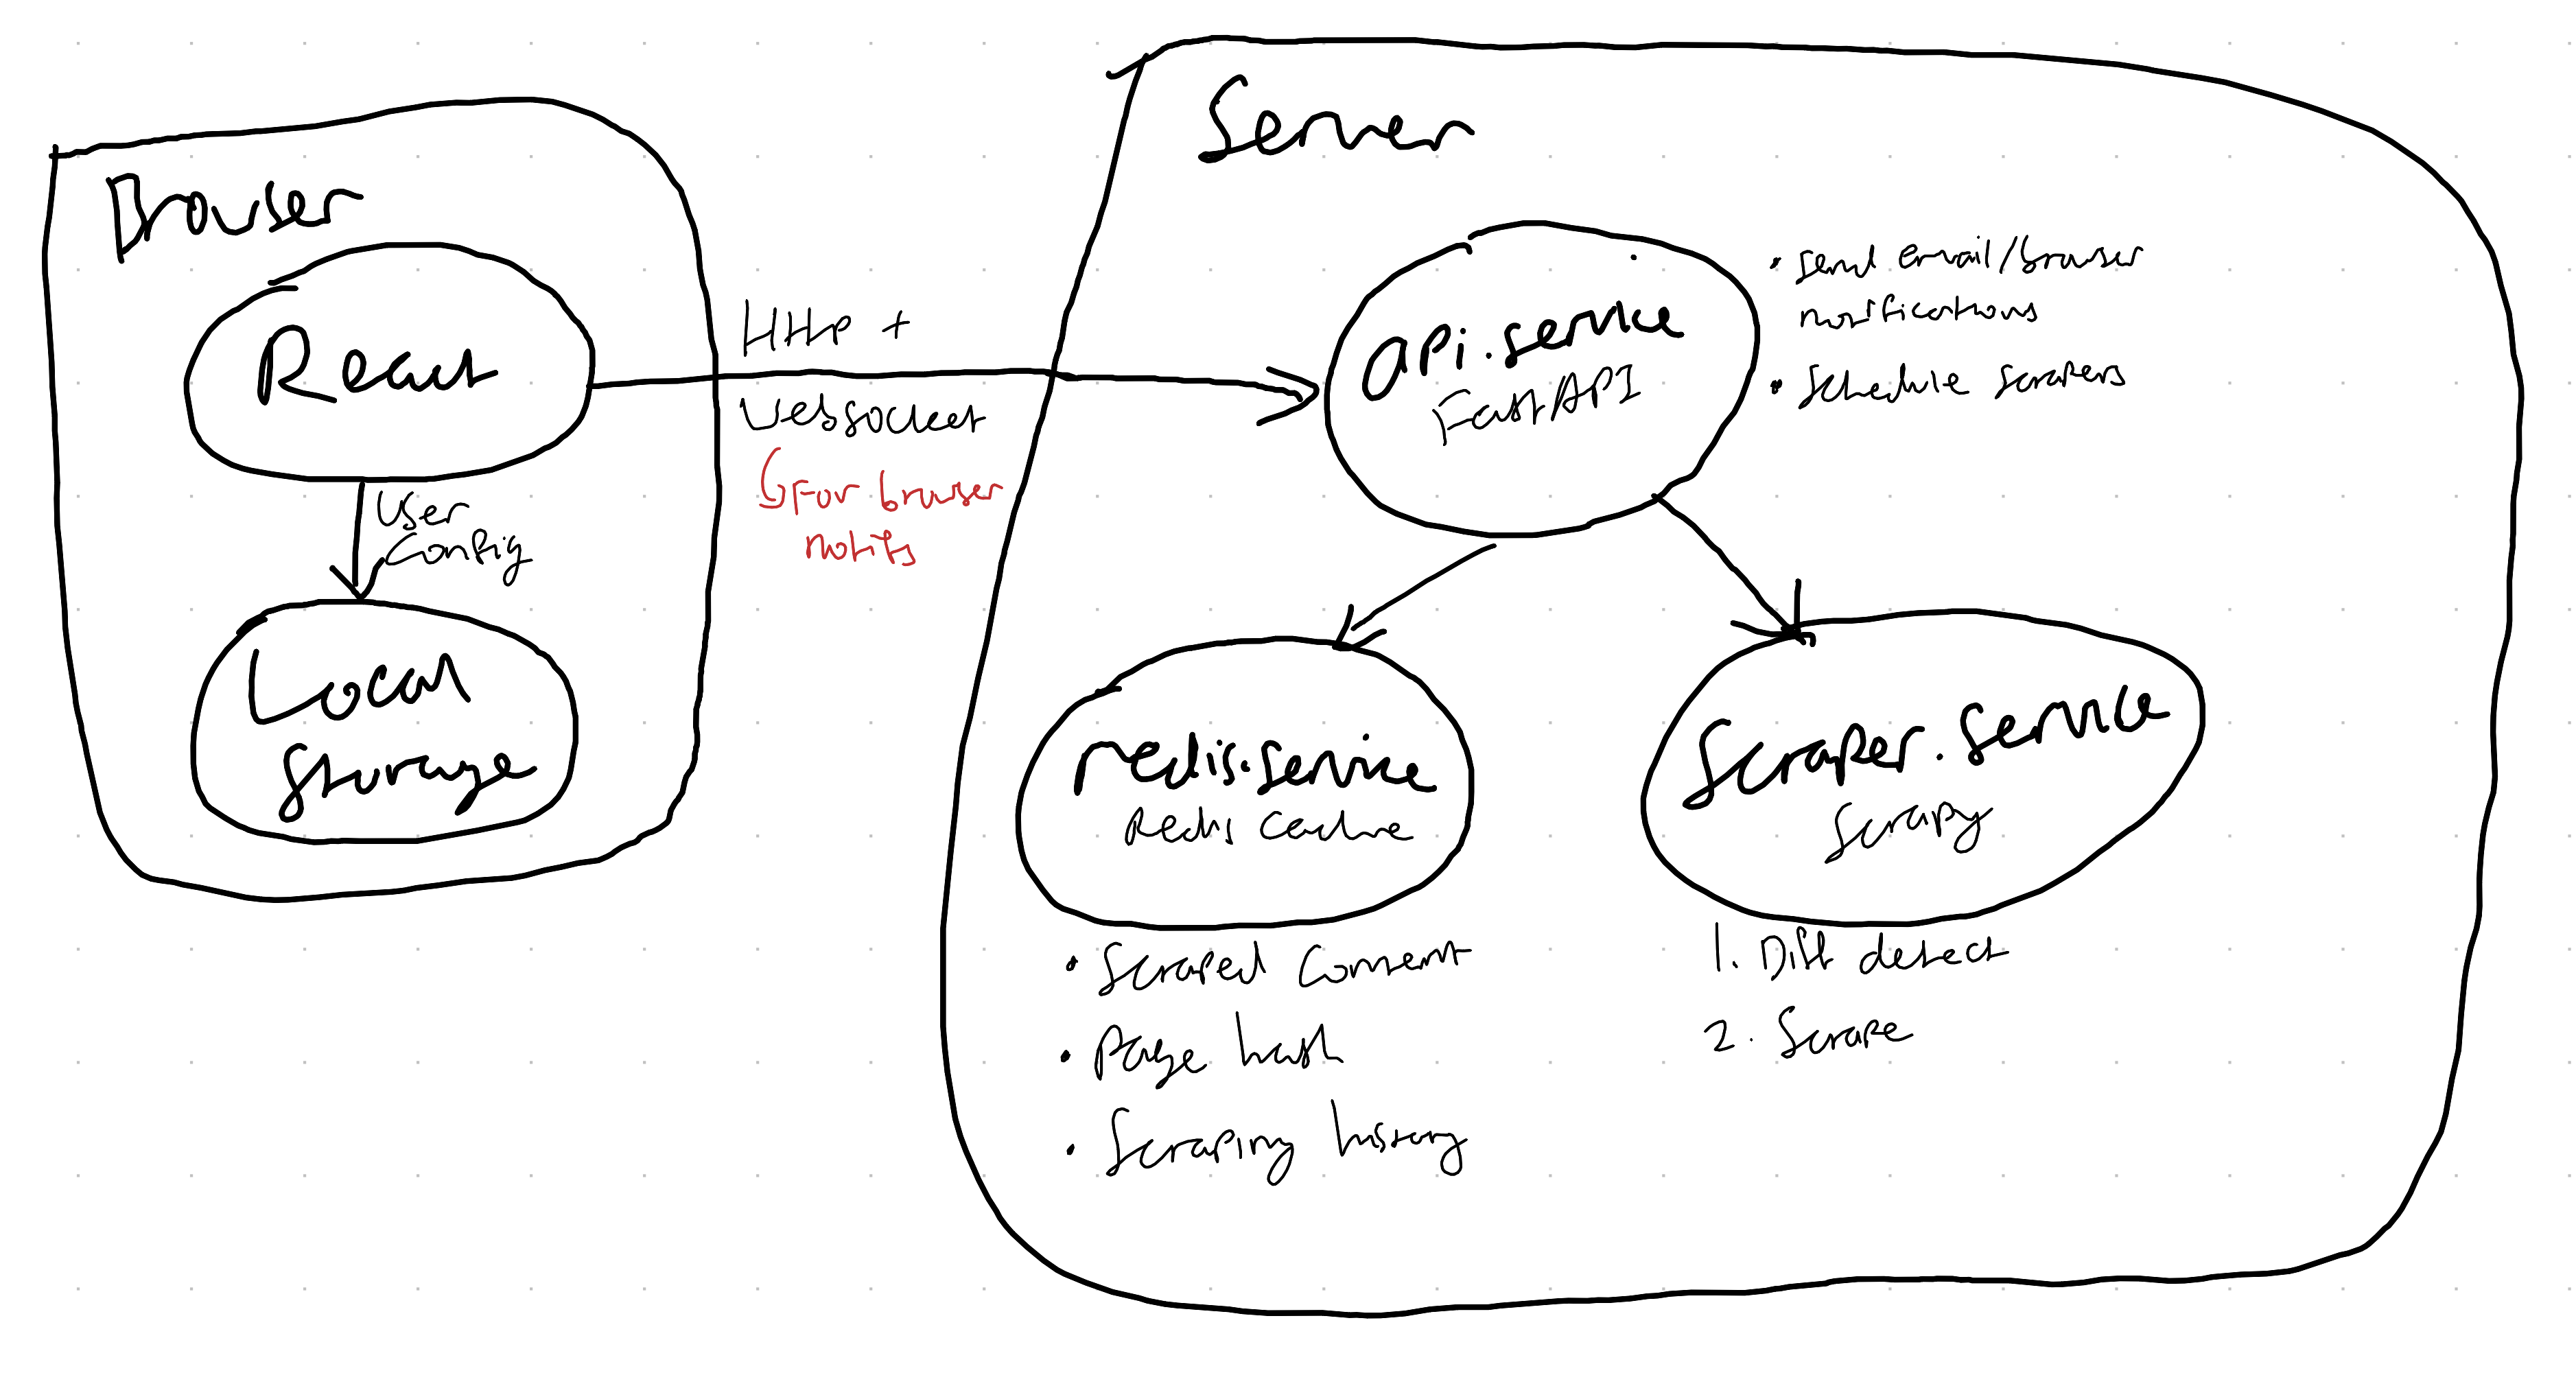 Browser
React
User
Config
Local
Storage
HTTP +
Websocket
For browser
notifs
Server
api.service
FastAPI
• Send email/browser
notifications
• Schedule scrapers
redis.service
Redis Cache
• Scraped Content
• Page hash
• Scraping history
Scraper.service
Scrapy
1. Diff detect
2. Scrape